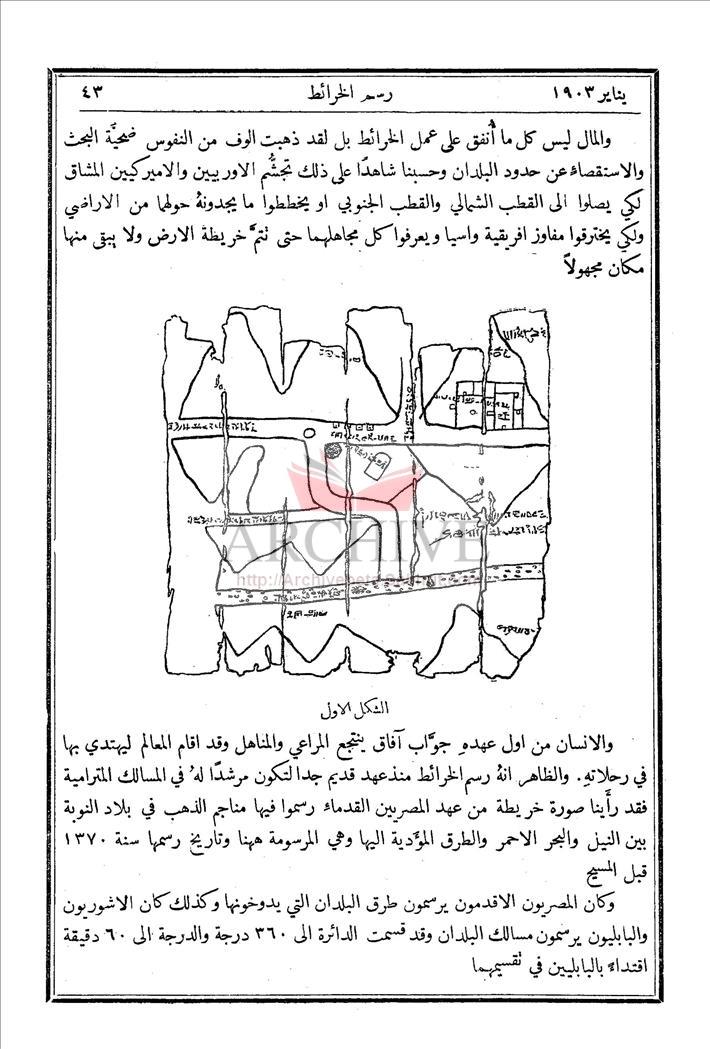 يناير ١٩٠٣ رسم الخرائط ٤٣
والمال ليس كل ما أُنفق على عمل الخرائط بل لقد ذهبت الوف من النفوس ضحيَّة البحث
والاستقصاءِ عن حدود البلدان وحسبنا شاهدًا على ذلك تجشُّم الاوربيين والاميركيين المشاق
لكي يصلوا الى القطب الشمالي والقطب الجنوبي او يخططوا ما يجدونهُ حولها من الاراضي
ولكي يخترقوا مفاوز افريقية واسيا ويعرفوا كل مجاهلهما حتى تتمَّ خريطة الارض ولا يبقى منها
مكان مجهولاً
ARCHIVE
الشكل الاول
والانسان من اول عهدهِ جوَّاب آفاق ينتجع المراعي والمناهل وقد اقام المعالم ليهتدي بها
في رحلاتهِ. والظاهر انهُ رسم الخرائط منذ عهد قديم جدا لتكون مرشدًا لهُ في المسالك المترامية
فقد رأينا صورة خريطة من عهد المصريين القدماء رسموا فيها مناجم الذهب في بلاد النوبة
بين النيل والبحر الاحمر والطرق المؤَدية اليها وهي المرسومة ههنا وتاريخ رسمها سنة ١٣٧٠
قبل المسيح
وكان المصريون الاقدمون يرسمون طرق البلدان التي يدوخونها وكذلك كان الاشوريون
والبابليون يرسمون مسالك البلدان وقد قسمت الدائرة الى ٣٦٠ درجة والدرجة الى ٦٠ دقيقة
اقتداءً بالبابليين في تقسيمهما